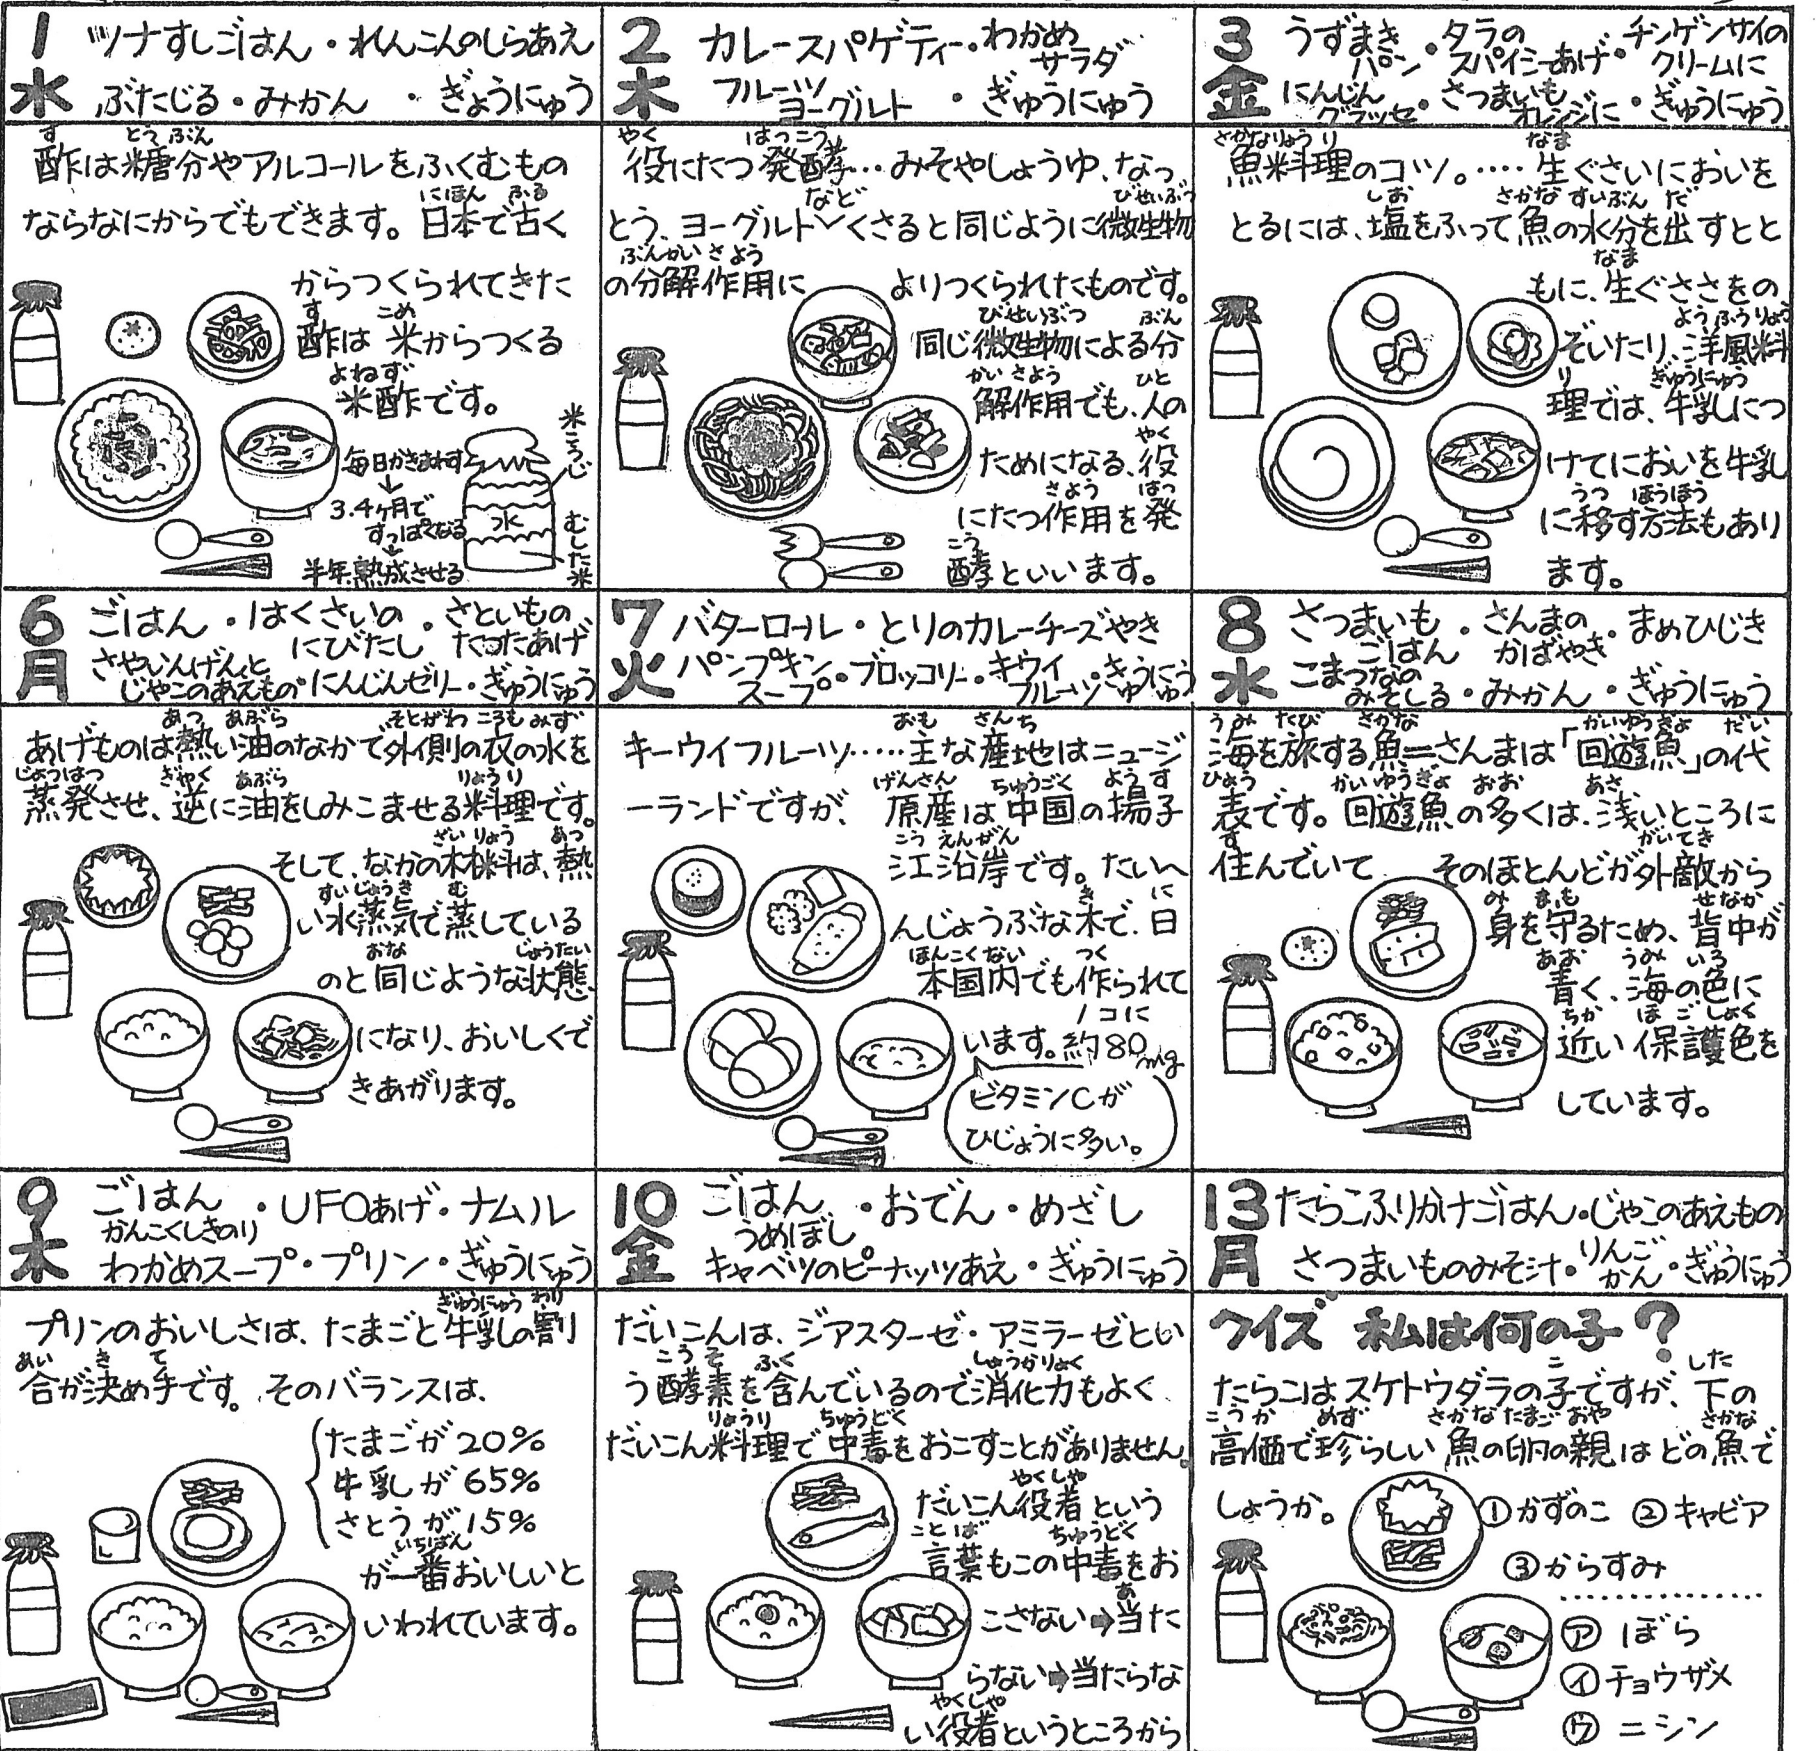 1 水
ツナすしごはん・れんこんのしらあえ
ぶたじる・みかん・ぎょうにゅう
酢は糖分やアルコールをふくむもの
ならなにからでもできます。日本で古く
からつくられてきた
酢は米からつくる
米酢です。
毎日かきまわす
↓
3.4ヶ月で
すっぱくなる
↓
半年熟成させる
米こうじ
水
むした米
2 木
カレースパゲティー・わかめサラダ
フルーツヨーグルト・ぎゅうにゅう
役にたつ発酵…みそやしょうゆ、なっ
とう、ヨーグルトなどくさると同じように微生物
の分解作用によりつくられたものです。
同じ微生物による分
解作用でも、人の
ためになる、役
にたつ作用を発
酵といいます。
3 金
うずまきパン・タラのスパイシーあげ・チンゲンサイのクリームに
にんじんグラッセ・さつまいもオレンジに・ぎゅうにゅう
魚料理のコツ。‥‥生ぐさいにおいを
とるには、塩をふって魚の水分を出すとと
もに、生ぐささをの
ぞいたり、洋風料
理では、牛乳につ
けてにおいを牛乳
に移す方法もあり
ます。
6 月
ごはん・はくさいのにびたし・さといものたつたあげ
さやいんげんとじゃこのあえもの・にんじんゼリー・ぎゅうにゅう
あげものは熱い油のなかで外側の衣の水を
蒸発させ、逆に油をしみこませる料理です。
そして、なかの材料は、熱
い水蒸気で蒸している
のと同じような状態
になり、おいしくで
きあがります。
7 火
バターロール・とりのカレーチーズやき
パンプキンスープ・ブロッコリー・キウイフルーツ・ぎゅうにゅう
キーウイフルーツ……主な産地はニュージ
ーランドですが、原産は中国の揚子
江沿岸です。たいへ
んじょうぶな木で、日
本国内でも作られて
います。
1コに
約80mg
ビタミンCが
ひじょうに多い。
8 水
さつまいもごはん・さんまのかばやき・まめひじき
こまつなのみそしる・みかん・ぎゅうにゅう
海を旅する魚=さんまは「回遊魚」の代
表です。回遊魚の多くは、浅いところに
住んでいてそのほとんどが外敵から
身を守るため、背中が
青く、海の色に
近い保護色を
しています。
9 木
ごはん・UFOあげ・ナムル
かんこくしきのり
わかめスープ・プリン・ぎゅうにゅう
プリンのおいしさは、たまごと牛乳の割
合が決め手です。そのバランスは、
たまごが20%
牛乳が65%
さとうが15%
が一番おいしいと
いわれています。
10 金
ごはん・おでん・めざし
うめぼし
キャベツのピーナッツあえ・ぎゅうにゅう
だいこんは、ジアスターゼ・アミラーゼとい
う酵素を含んでいるので消化力もよく
だいこん料理で中毒をおこすことがありません。
だいこん役者という
言葉もこの中毒をお
こさない➡当た
らない➡当たらな
い役者というところから
13 月
たらこふりかけごはん・じゃこのあえもの
さつまいものみそ汁・りんごかん・ぎゅうにゅう
クイズ 私は何の子?
たらこはスケトウダラの子ですが、下の
高価で珍らしい魚の卵の親はどの魚で
しょうか。
①かずのこ ②キャビア
③からすみ
㋐ ぼら
㋑ チョウザメ
㋒ ニシン